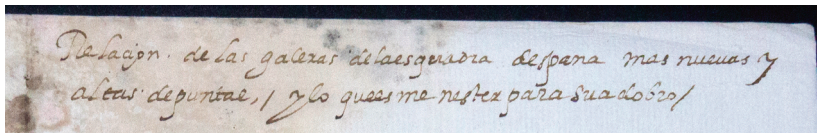 Relacion. de las galeras delaesquadra despana mas nuevas y
altas depuntae, / ylo quees menester para suadobio /